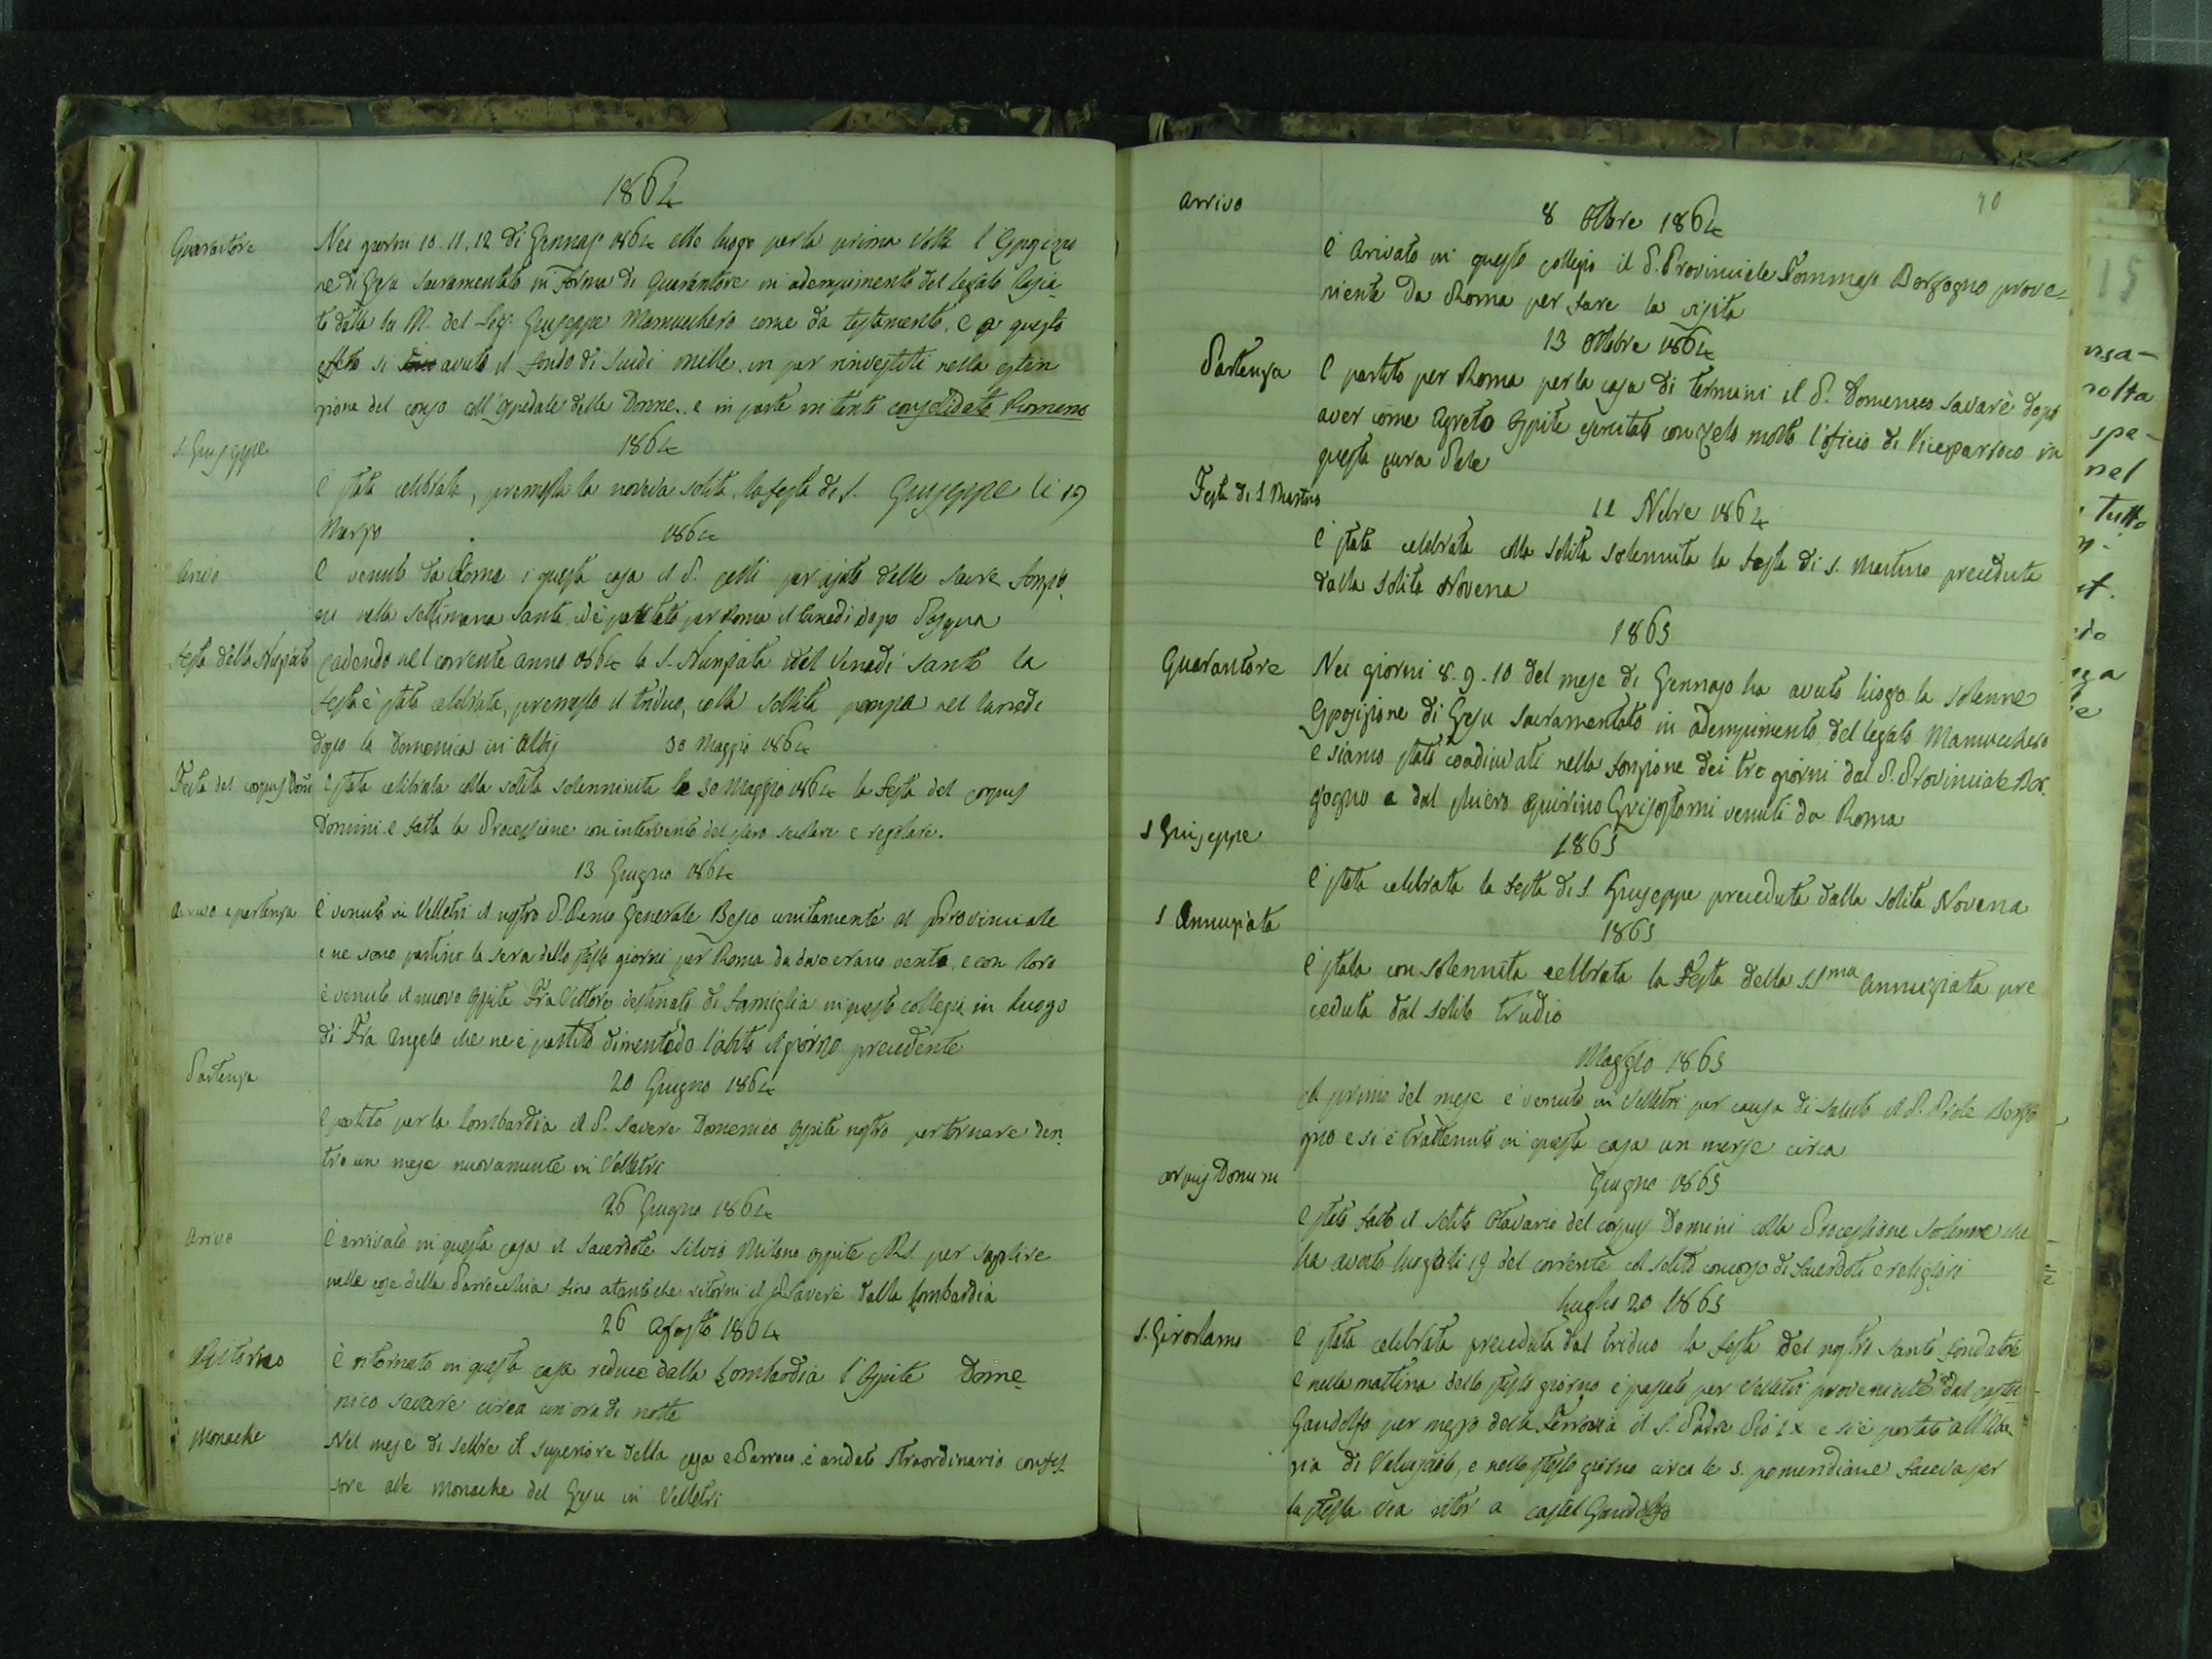 1864
Quarantore Nei giorni 10. 11. 12 di Gennajo 1864 ebbe luogo per la prima volta l'Esposizio
ne di Gesu Sacramentato in forma di Quarantore in adempimento del legato lascia-
to dalla bo. M. del Sig. Giuseppe Manucchero come da testamento, e a questo
effetto si avuto il fondo di Scudi mille in per rinvestiti nella estin
zione del coll'ospedale delle Donne, e in parte in tanto consolidato Romano
S. Giuseppe 1864
È stata celebrata, premessa la novena solita, la festa di S. Giuseppe li 19
Marzo 1864
Arivo È venuto da Roma i questa casa il P. per ajuto delle Sacre fonzio
ni nella Settimana Santa, ed è partito per Roma il lunedi dopo Pasqua
festa della Nunziata Cadendo nel corrente anno 1864 la S. Nunziata nel Venedi Santo la
festa è stata celebrata, premesso il triduo, colla sollita pompa nel lunedi
dopo la Domenica in Albis 30 Maggio 1864
Festa del corpus Doñi È stata celibrata colla solita solenninita le 30 Maggio 1864 la festa del corpus
Domini e fatta la Processione con intervento del clero seculare e regolare.
13 Giugno 1864
Arrivo e partenza È venuto in Velletri il nostro P. Rmo Generale Besio unitamente al Provinciale
e ne sono partino la sera dello stesso giorni per Roma da dove erano venta, e con loro
è venuto il nuovo Ospite Fra Vittore destinato di famiglia in questo collegio in luogo
di Fra Angelo che ne è partito dimentedo l'abito il giorno precedente
Partenza 20 Giugno 1864
È partito per la Lombardia il P. Savere Domenico Ospite nostro per tornare den
tro un mese nuovamente in Velletri
26 Giugno 1864
Arivo È arrivato in questa casa il Sacerdote Silvio Milano ospite NS. per suplire
nelle cose della Parrocchia fino atanto che ritorni il P. Saverè dalla Lombardia
26 Agosto 1864
Ritorno è ritornato in questa casa reduce dalla Lombardia l'Ospite Dome
nico Savare circa un ora di notte
Monache Nel mese di Settbre il Superiore della casa e Parroco è andato Straordinario confes
sore alle Monache del Gesu in Velletri
10
Arrivo 8 Ottbre 1864
È Arivato in questo collegio il P. Provinciale Tommaso Borgogno prove-
niente Da Roma per fare la visita
13 Ottobre 1864
Partenza È partito per Roma per la casa di Termini il P. Domenico Savarè dopo
aver come Agreto Ospite esercitato con zelo molto l'oficio di Viceparroco in
questa cura
Festa di S. Martino 11 Nvbre 1864
È stata celebrata colla solita solennita la festa di S. Martino preceduta
dalla solita Novena
1865
Quarantore Nei giorni 8. 9. 10 del mese di Gennajo ha avuto luogo la solenne
Esposizione di Gesu Sacramentato in adempimento del legato Manucchero
e siamo stati coadiuvati nella fonzione dei tre giorni dal P. Provinciale Bor
gogno e dal chierico Quirino Grisostomi venuti da Roma
S Giuseppe 1865
È stata celebrata la festa di S. Giuseppe preceduta dalla solita Novena
S Annunziata 1865
È stata con solennita celbrata la Festa della SSma Annunziata pre
ceduta dal solito trudio
Maggio 1865
Al primo del mese è venuto in Velletri per causa di salute il P. Ple Borgo
gno e si è trattenuto in questa casa un mese circa
corpus Domini Giugno 1865
È stato fatto il solito Otavario del corpus Domini colla Processione solenne che
ha avuto luogo li 19 del corrente col solito concorso di Sacerdoti e religiosi
Luglio 20 1865
S. Girolamo È stata celebrata preceduta dal triduo la festa del nostro Santo fondatore
e nella mattina dello stesso giorno è passato per Velletri proveniente dal castel
Gandolfo per mezzo della Ferrovia il S. Padre Pio IX e si è portato all'Aba
zia di Valvisciolo, e nello stesso giorno circa le 5. pomeridiane faceva per
la stessa via ritor a castel Gandolfo
15
nsa-
nolta
spe-
nel
tutto